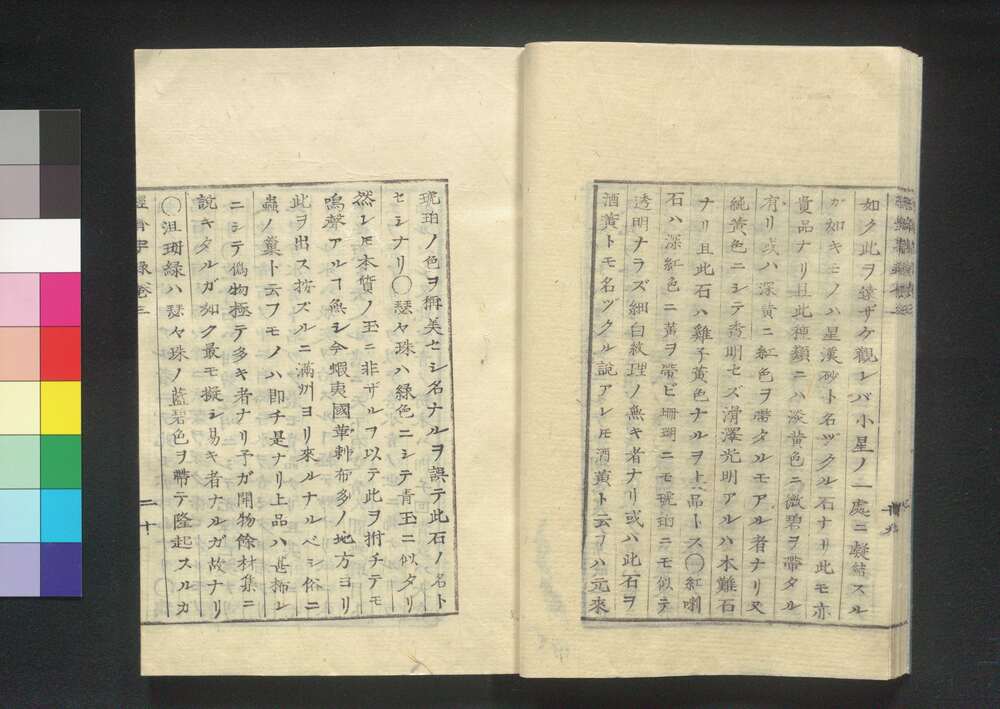 如ク此ヲ遠ザケ觀レバ小星ノ一處ニ凝結スル
ガ如キモノハ星漢砂ト名ヅクル石ナリ此モ亦
貴品ナリ且此種類ニハ淡黄色ニ微碧ヲ帶タル
有リ或ハ深黄ニ紅色ヲ帶タルモアル者ナリ又
純黄色ニシテ透明セズ滑澤光明アルハ木難石
ナリ且此石ハ雞子黄色ナルヲ上品トス〇紅喇
石ハ深紅色ニ黄ヲ帶ビ珊瑚ニモ琥珀ニモ似テ
透明ナラズ細白紋理ノ無キ者ナリ或ハ此石ヲ
酒黄トモ名ヅクル説アレ𪜈酒黄ト云フハ元來
琥珀ノ色ヲ稱美セシ名ナルヲ誤テ此石ノ名ト
セシナリ〇瑟々珠ハ綠色ニシテ青玉ニ似タリ
然レ𪜈本質ノ玉ニ非ザルヲ以テ此ヲ拊チテモ
鳴聲アルヿ無シ今蝦夷國華刺布多ノ地方ヨリ
此ヲ出ス按ズルニ滿州ヨリ來ルナルベシ俗ニ
蟲ノ巢ト云フモノハ即チ是ナリ上品ハ甚稀レ
ニシテ僞物極テ多キ者ナリ予ガ開物餘材集ニ
説キタルガ如ク最モ擬シ易キ者ナルガ故ナリ
〇沮珇綠ハ瑟々珠ノ藍碧色ヲ帶テ隆起スルカ
經濟要錄卷三
二十